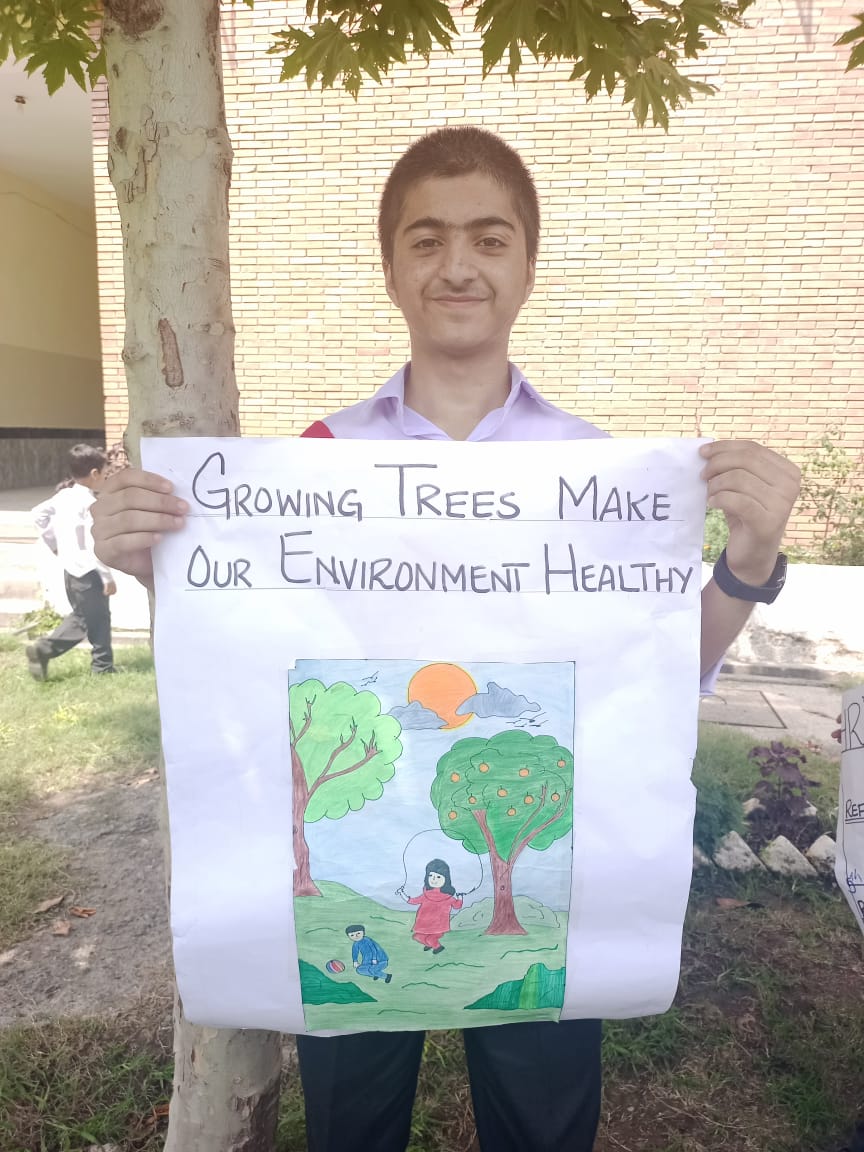 GROWING TREES MAKE
OUR ENVIRONMENT HEALTHY